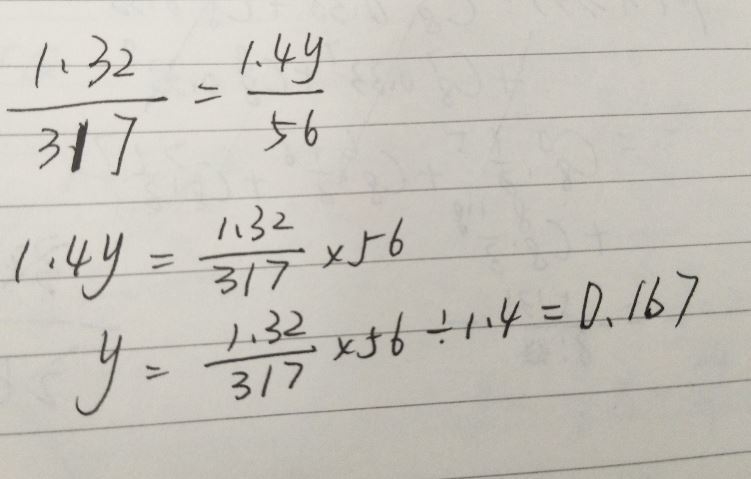 1.32/317 = 1.4y/56
1.4y = 1.32/317 ×56
y = 1.32/317 ×56 ÷1.4 = 0.167